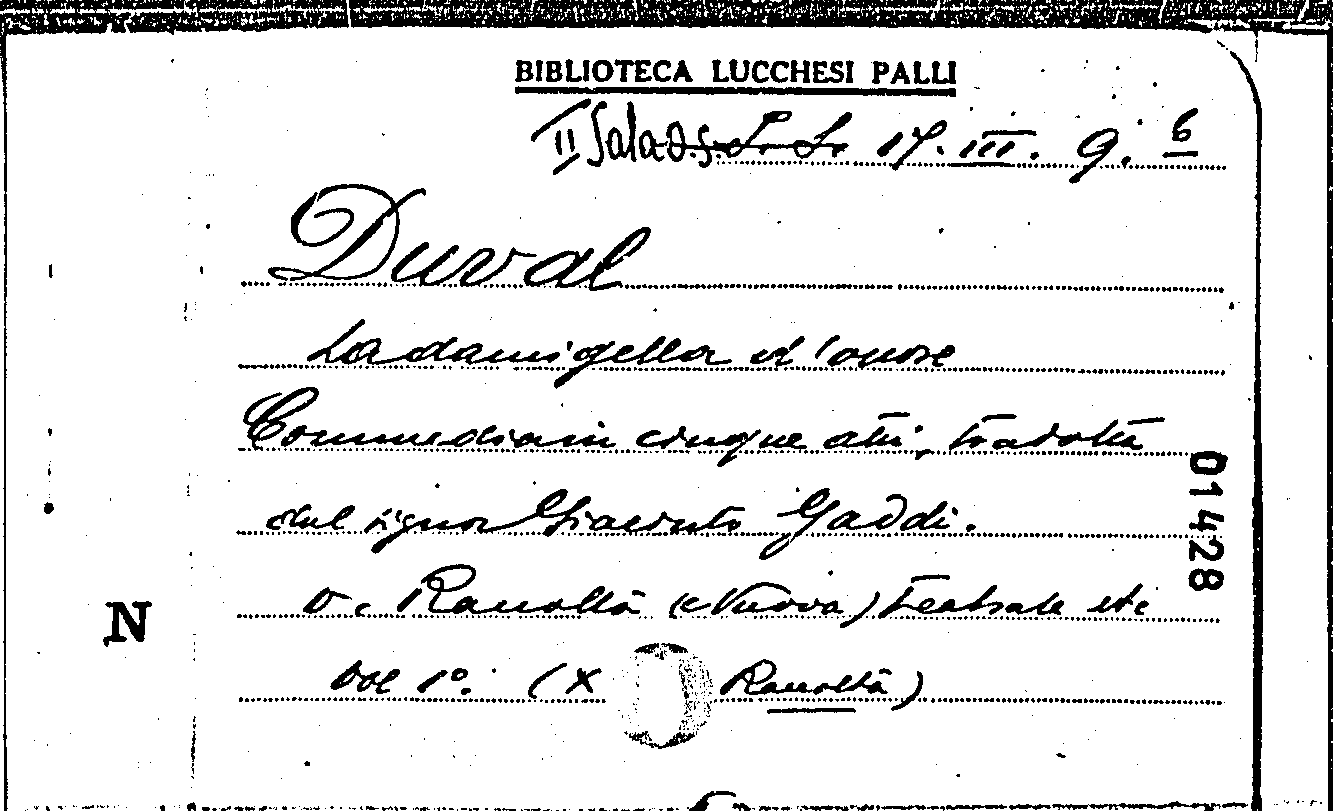 BIBLIOTECA LUCCHESI PALLI
II Sala 17. III. 9. 6
Duval
La damigella d'onore
Commedia in cinque atti, tradotta
dal signor Giacinto Gaddi.
v. Raccolta (Nuova) teatrale etc
vol 1º. (X Raccolta)
01428
N